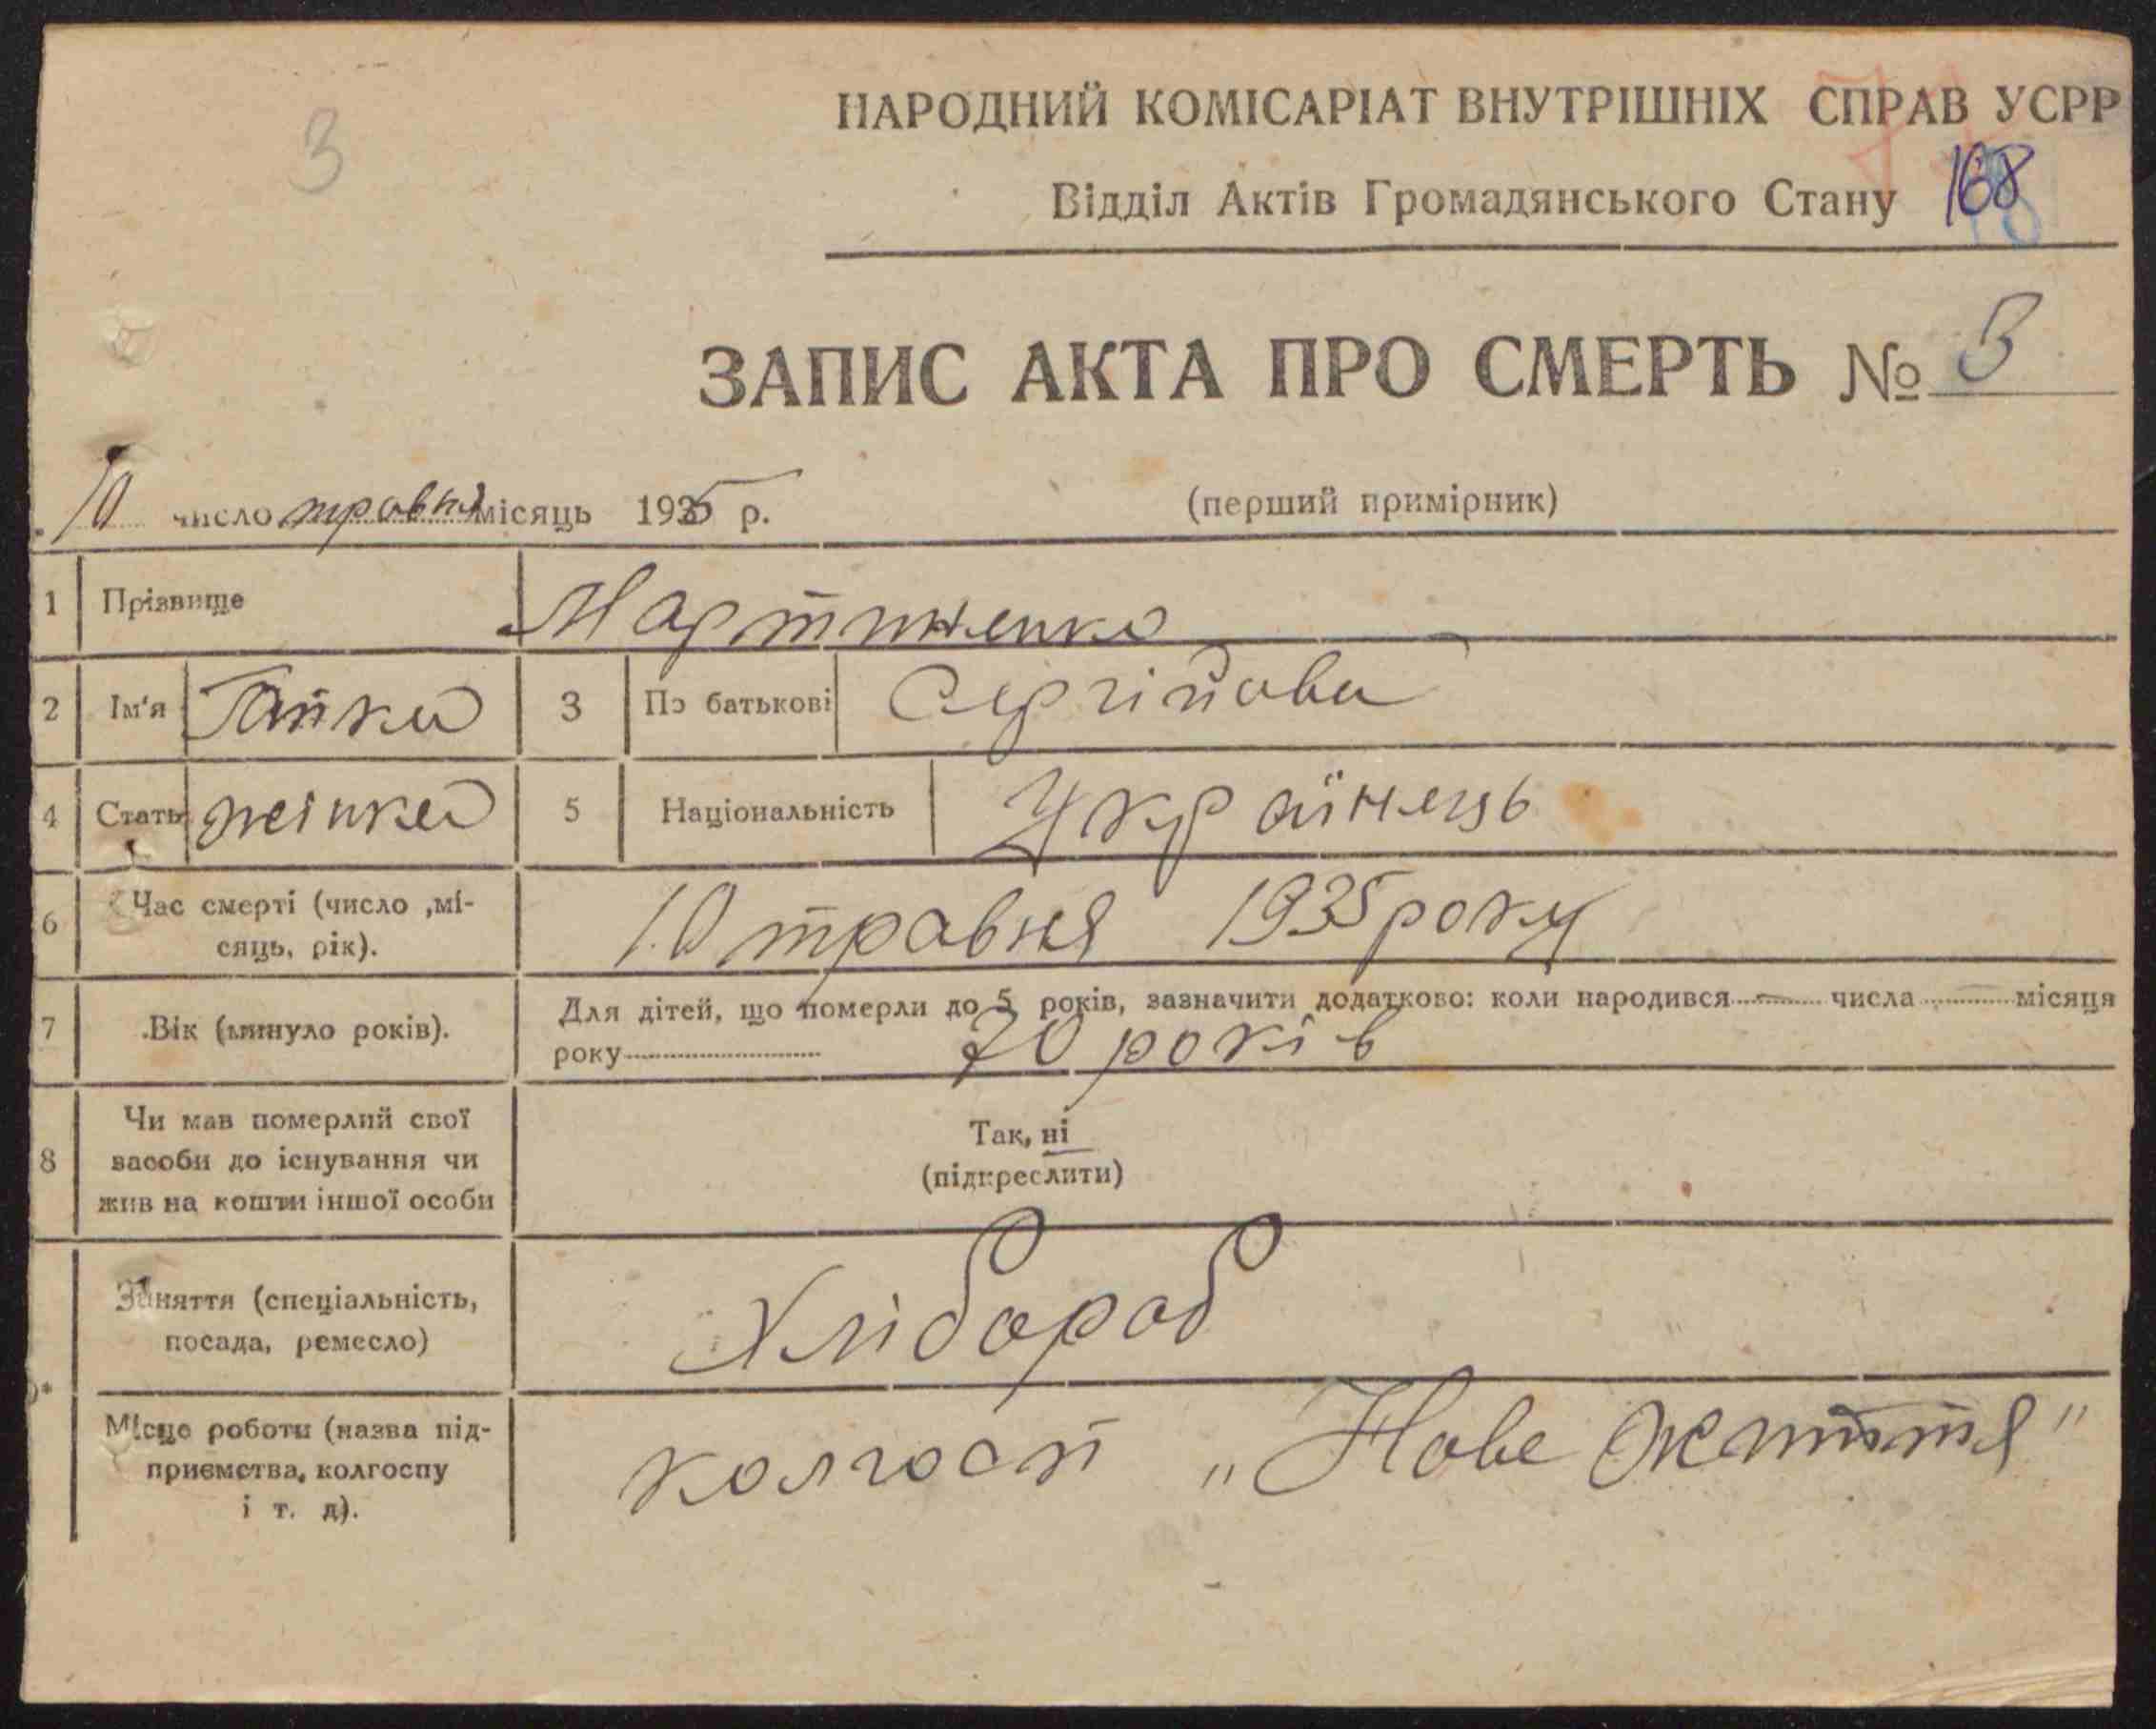 3
НАРОДНИЙ КОМІСАРІАТ ВНУТРІШНІХ СПРАВ УСРР
Відділ Актів Громадянського Стану 168
ЗАПИС АКТА ПРО СМЕРТЬ № 3
10 число травня місяць 1935 р. (перший примірник)
1 Прізвище Мартиненко
2 Ім'я Ганка 3 По батькові Сергійова
4 Стать жінка 5 Національність Українець
6 Час смерті (число ,мі-
сяць, рік). 10 травня 1935 року
7 Вік (минуло років). Для дітей, що померли до 5 років, зазначити додатково: коли народився числа місяця
року 70 років
8 Чи мав померлий свої
засоби до існування чи
жив на кошти іншої особи
Так, ні
(підкреслити)
Заняття (спеціальність,
посада, ремесло) Хлібороб
Місце роботи (назва під-
приємства, колгоспу
і т. д).
колгосп „Нове життя"